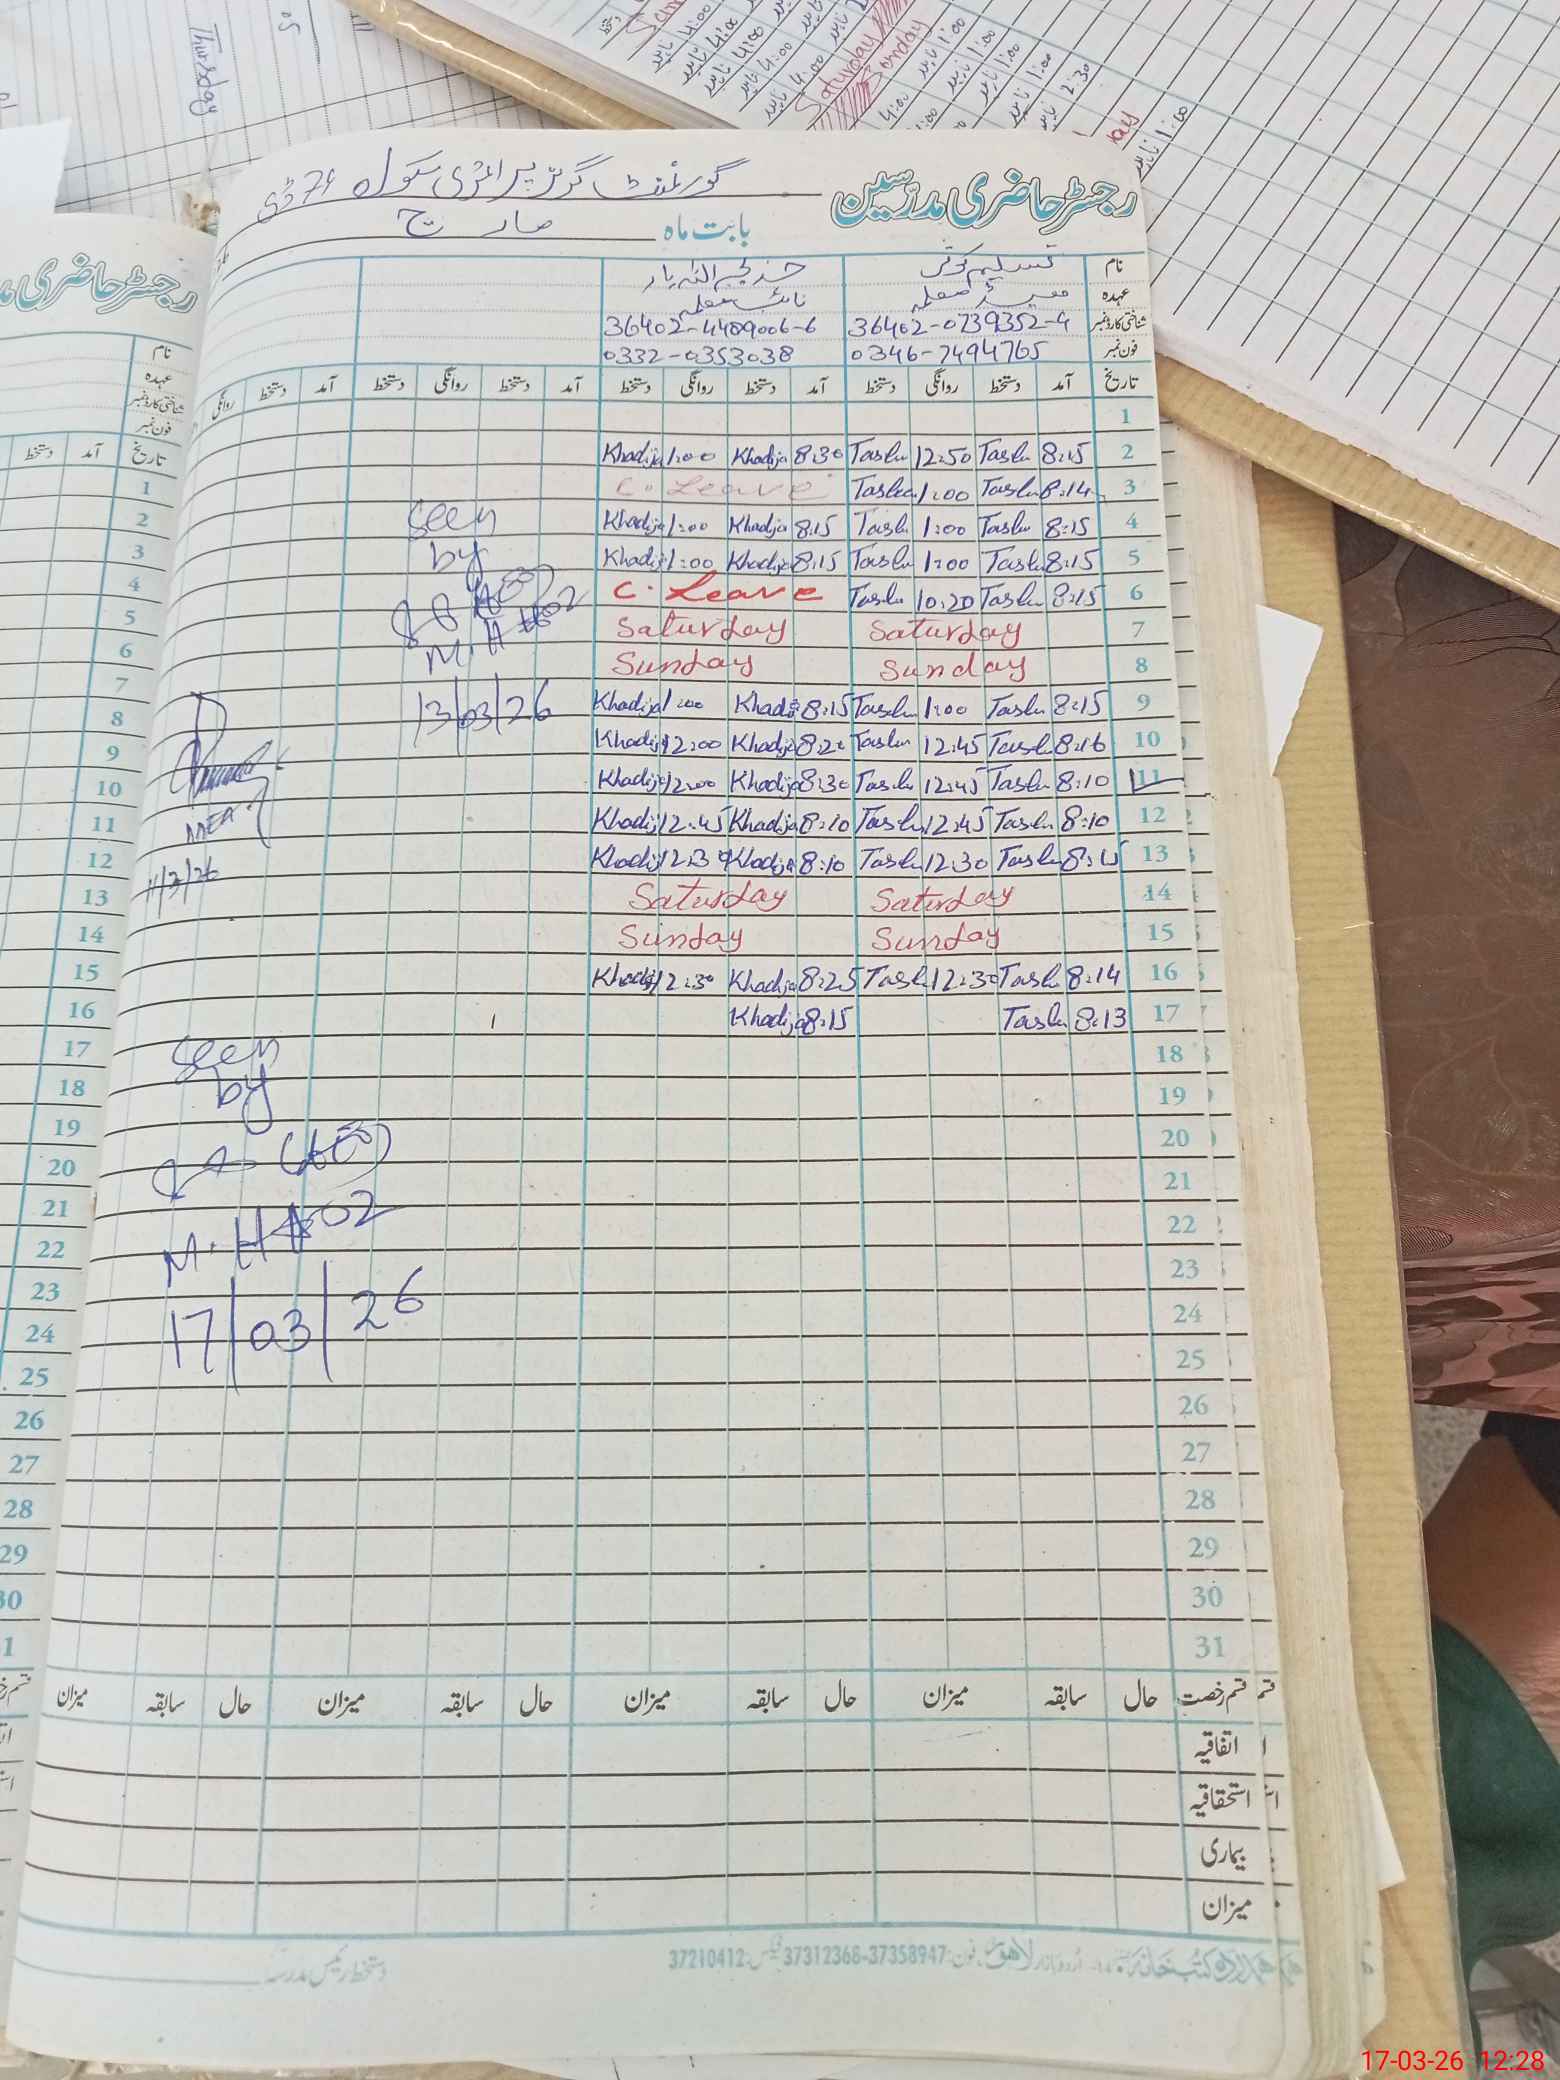 رجسٹر حاضری مدرسین گورنمنٹ گرلز پرائمری سکول 76 ڈی
بابت ماہ مارچ
نام تسلیم کوثر خدیجہ اللہ یار
عہدہ ہیڈ معلمہ نائب معلمہ
شناختی کارڈ نمبر 36402-0739352-4 36402-4489006-6
فون نمبر 0346-7494765 0332-0353038
تاریخ آمد دستخط روانگی دستخط آمد دستخط روانگی دستخط آمد دستخط روانگی دستخط آمد دستخط روانگی
1
2 8:15 Taslu 12:50 Taslu 8:30 Khadija 1:00 Khadija
3 8:14 Taslu 1:00 Taslu C. Leave
4 8:15 Taslu 1:00 Taslu 8:15 Khadija 1:00 Khadija
5 8:15 Taslu 1:00 Taslu 8:15 Khadija 1:00 Khadija
6 8:15 Taslu 10:20 Taslu C. Leave
7 Saturday Saturday
8 Sunday Sunday
9 8:15 Taslu 1:00 Taslu 8:15 Khadija 1:00 Khadija
10 8:16 Taslu 12:45 Taslu 8:20 Khadija 12:00 Khadija
11 8:10 Taslu 12:45 Taslu 8:30 Khadija 12:00 Khadija
12 8:10 Taslu 12:45 Taslu 8:10 Khadija 12:45 Khadija
13 8:15 Taslu 12:30 Taslu 8:10 Khadija 12:30 Khadija
14 Saturday Saturday
15 Sunday Sunday
16 8:14 Taslu 12:30 Taslu 8:25 Khadija 12:30 Khadija
17 8:13 Taslu 8:15 Khadija
18
19
20
21
22
23
24
25
26
27
28
29
30
31
seen
by
(AEO)
M.H #02
13/03/26
AEO
11/3/26
seen
by
(AEO)
M.H #02
17/03/26
قسم رخصت حال سابقہ میزان حال سابقہ میزان حال سابقہ میزان حال سابقہ میزان
اتفاقیہ
استحقاقیہ
بیماری
میزان
ہمدرد کتب خانہ اردو بازار لاہور فون: 37358947-37312368 فیکس: 37210412
دستخط رئیس مدرسہ
رجسٹر حاضری
نام
عہدہ
شناختی کارڈ نمبر
فون نمبر
تاریخ آمد دستخط
1
2
3
4
5
6
7
8
9
10
11
12
13
14
15
16
17
18
19
20
21
22
23
24
25
26
27
28
29
30
Thursday
Saturday
Sunday
17-03-26 12:28